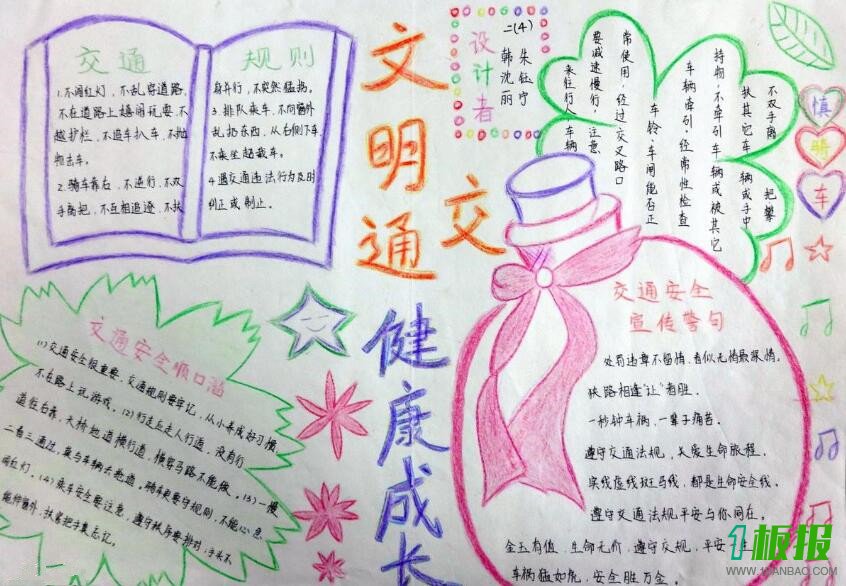 交通 规则
1.不闯红灯，不乱穿道路，
不在道路上嬉闹玩耍、不
越护栏、不追车扒车、不抛
物击车。
2.骑车靠右、不逆行、不双
手离把，不互相追逐、不扶
身并行，不突然猛拐。
3.排队乘车、不向窗外
乱扔东西，从右侧下车
不乘坐超载车。
4.遇交通违法行为及时
纠正或制止。
文明交通
健康成长
设计者
二(4)
朱钰宁
韩沈丽
不双手离把
扶其它车辆或手中
持物，不牵引车辆或被其它
车辆牵引，经常性检查
车铃、车闸能否正
常使用，经过交叉路口
要减速慢行，注意
来往行人、车辆
慎
骑
车
交通安全顺口溜
(1)交通安全很重要，交通规则要牢记，从小养成好习惯，
不在路上玩游戏。(2)行走应走人行道，没有行
道往右靠，天桥地道横行道，横穿马路不能做。(3)一慢
二看三通过，莫与车辆去抢道，骑车更要守规则，不能心急
闯红灯。(4)乘车安全要注意，遵守秩序要排队，手头不
能伸窗外，扶紧把手莫忘记。
交通安全
宣传警句
处罚违章不留情，看似无情最振情。
狭路相逢"让"者胜。
一秒钟车祸，一辈子痛苦。
遵守交通法规，关爱生命旅程。
实线虚线斑马线，都是生命安全线。
遵守交通法规平安与你同在。
金玉有值，生命无价，遵守交规，平安
车祸猛如虎，安全胜万金。
1板报
WWW.1BANBAO.COM